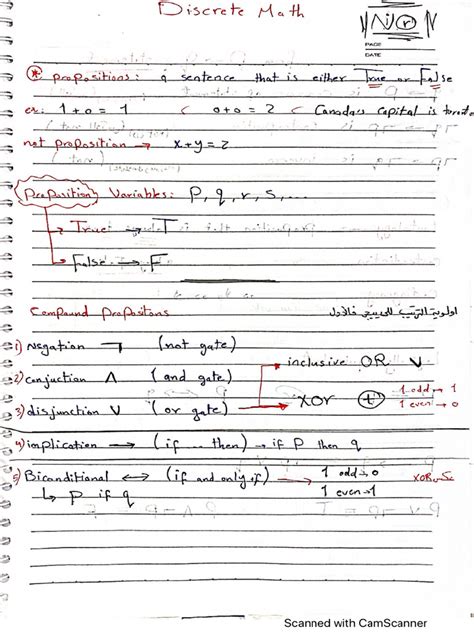 Discrete Math
PAGE
DATE
* propositions: a sentence that is either True or False
ex: 1+0=1 ( 0+0=2 ( Canada's Capital is toronto
not proposition → x+y=2
Preposition Variables: P, q, r, s, ...
→ True: → T
→ False → F
Compound Propositons
اولوية الترتيب للي ييجي فالأول
1) Negation ¬ (not gate)
2) conjuction ∧ (and gate)
→ inclusive OR ∨
3) disjunction ∨ (or gate)
→ XOR ⊕ 1 odd → 1
1 even → 0
4) implication → (if ... then) → if P then q
5) Biconditional ↔ (if and only if) → 1 odd → 0
1 even → 1
عكس XOR
↳ P if q
Scanned with CamScanner